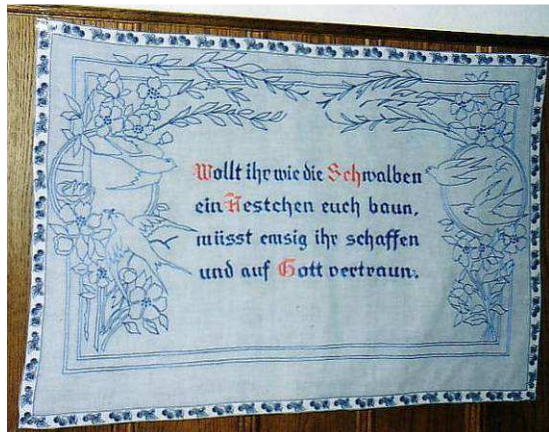 Wollt ihr wie die Schwalben
ein Nestchen euch baun,
müsst emsig ihr schaffen
und auf Gott vertraun.